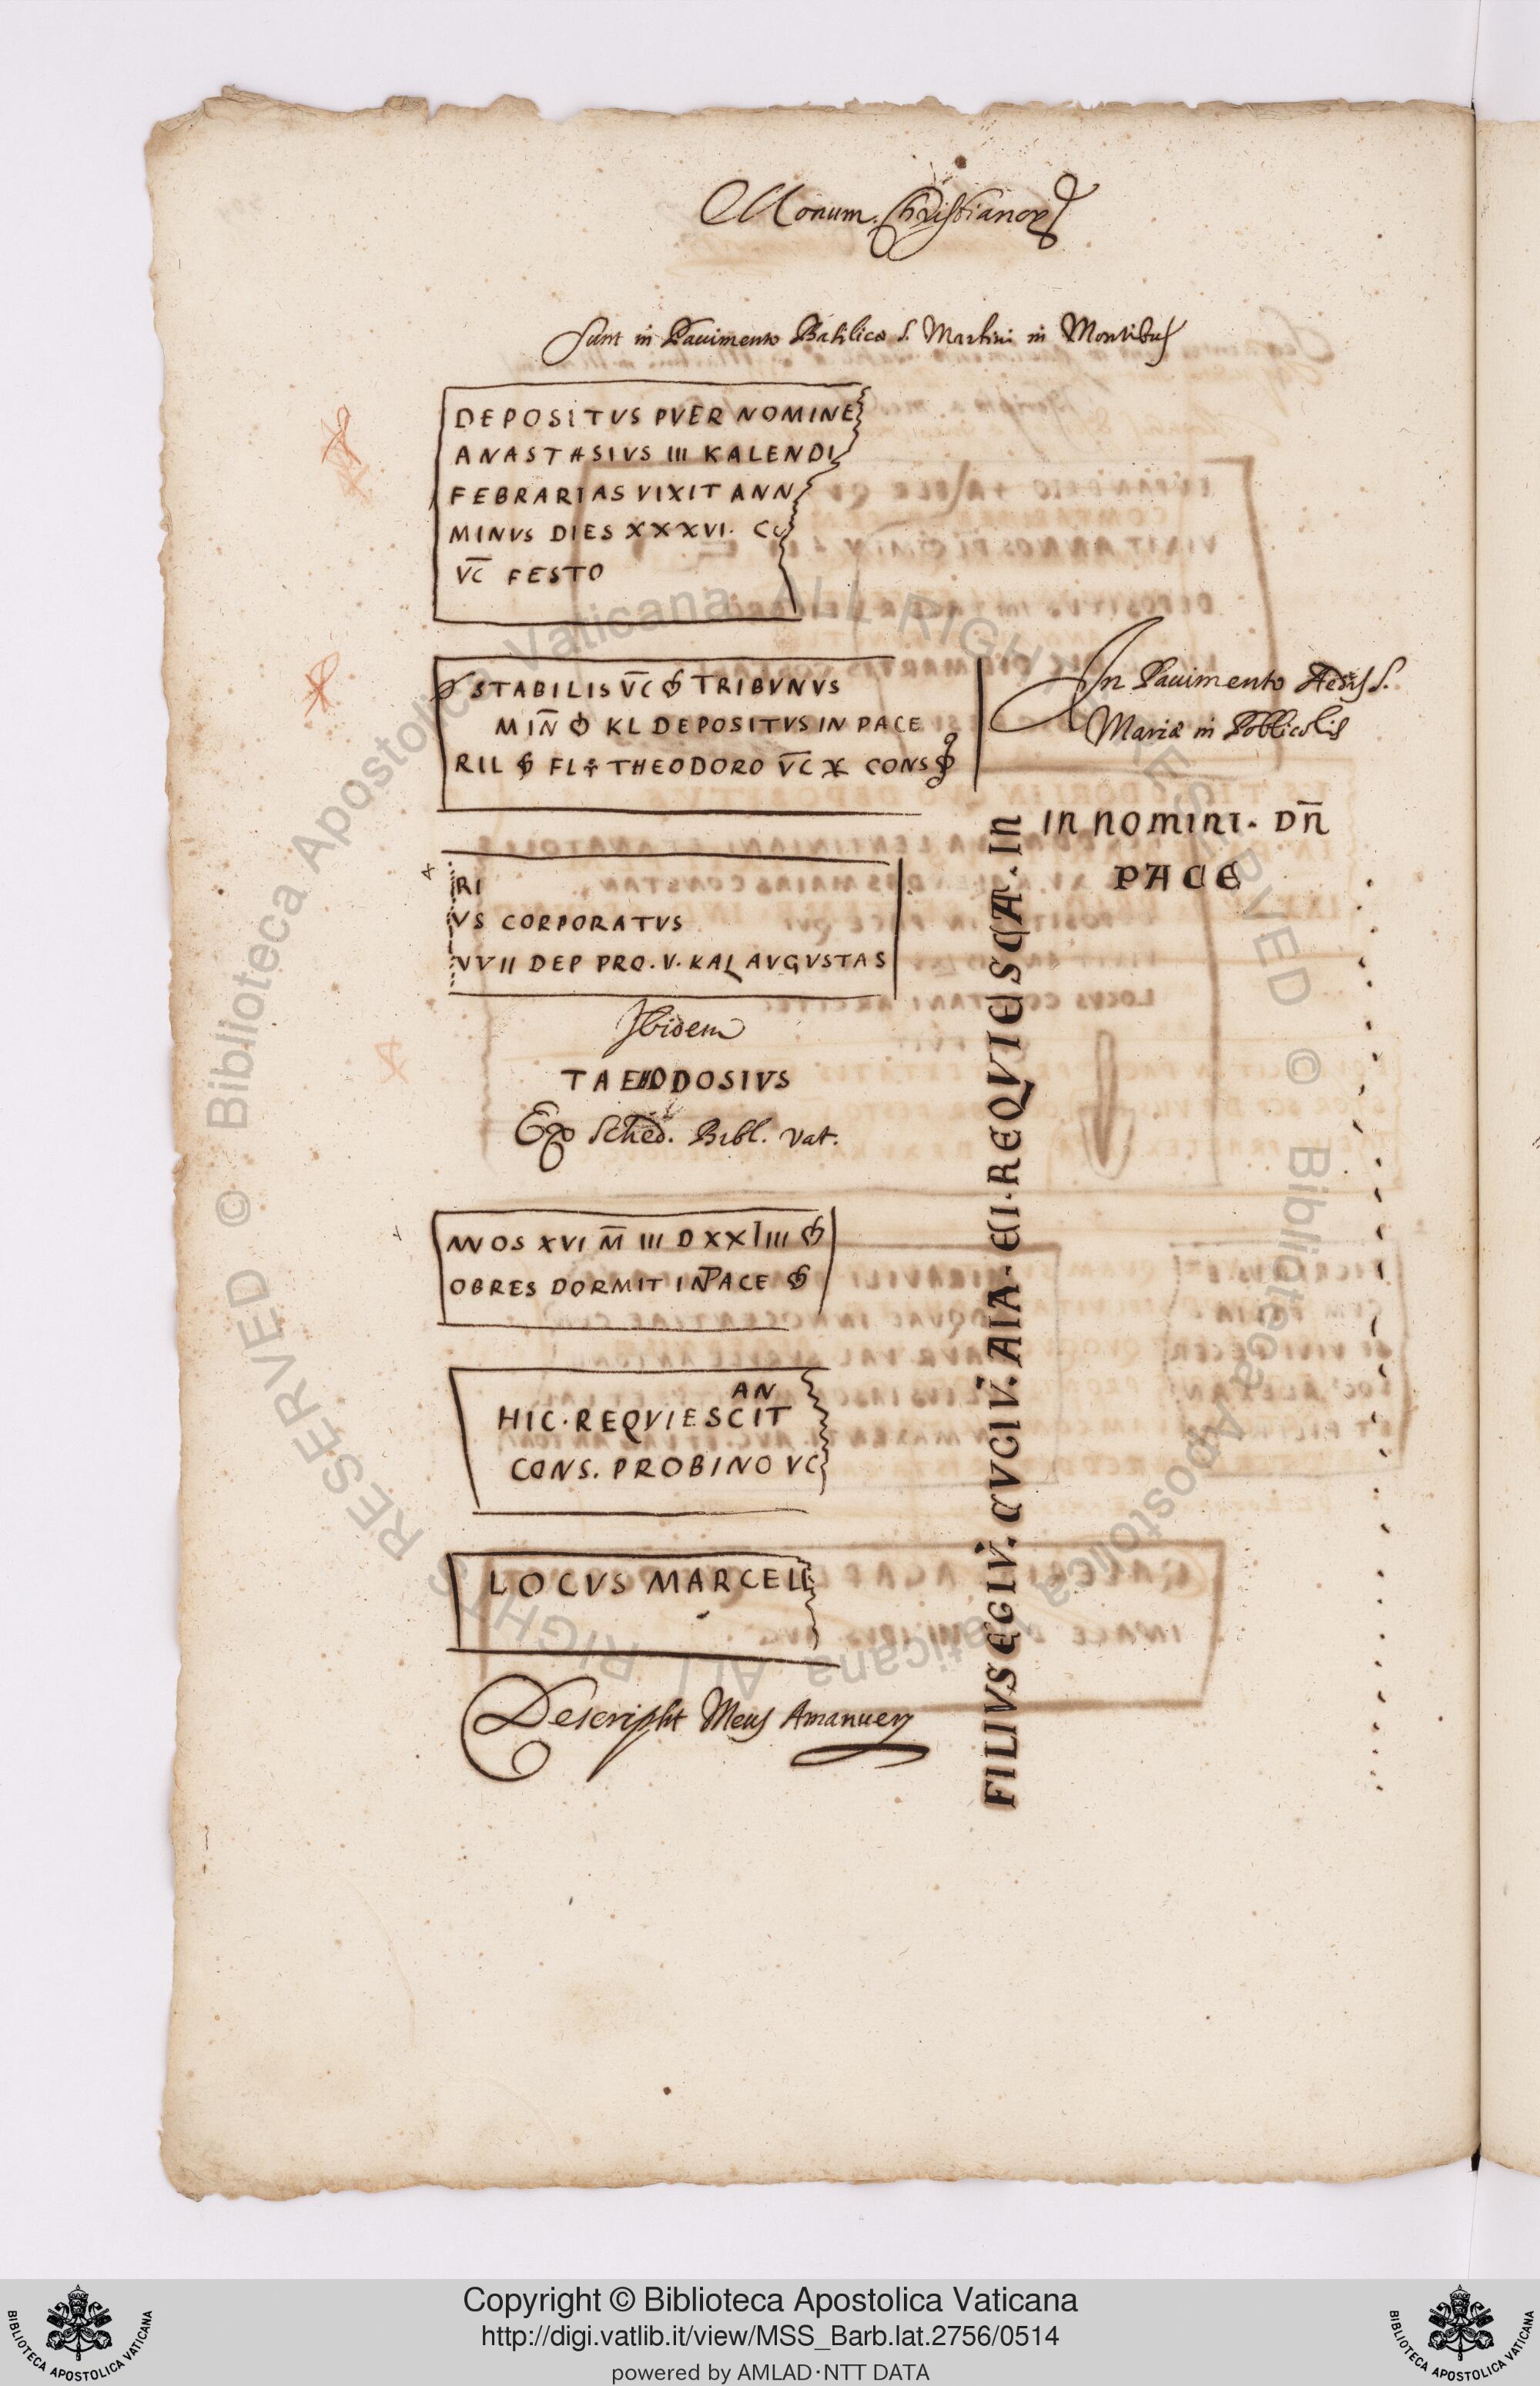 Monum. Christianor
Sunt in Pauimento Basilicæ S. Martini in Montibus
DEPOSITVS PVER NOMINE
ANASTASIVS III KALENDI
FEBRARIAS VIXIT ANN
MINVS DIES XXXVI. CO
V̅C̅ FESTO
STABILIS V̅C̅ TRIBVNVS
MIN̅ KL DEPOSITVS IN PACE
RIL FL THEODORO V̅C̅ CONS
In Pauimento Aedis S.
Mariæ in
RI
VS CORPORATVS
VVII DEP PRO. V. KAL AVGVSTAS
Ibidem
DOSIVS
Ex Sched. Bibl. Vat.
NVOS XVI M̅ III D XXIIII
OBRES DORMIT IN PACE
AN
HIC · REQVIESCIT
CONS. PROBINO VC
LOCVS MARCELL
Descripsit Meus Amanuen
IN NOMINI · DN̅
PACE
FILIVS EGIV. CVGIV. AIA · EI · REQVIESCA · IN
Copyright © Biblioteca Apostolica Vaticana
http://digi.vatlib.it/view/MSS_Barb.lat.2756/0514
powered by AMLAD·NTT DATA
BIBLIOTECA APOSTOLICA VATICANA
BIBLIOTECA APOSTOLICA VATICANA
© Biblioteca Apostolica Vaticana ALL RIGHTS RESERVED © Biblioteca Apostolica Vaticana ALL RIGHTS RESERVED